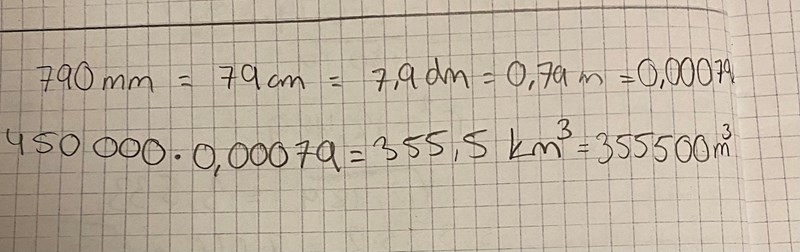 790 mm = 79 cm = 7,9 dm = 0,79 m = 0,00079
450 000 · 0,00079 = 355,5 km³ = 355500 m³